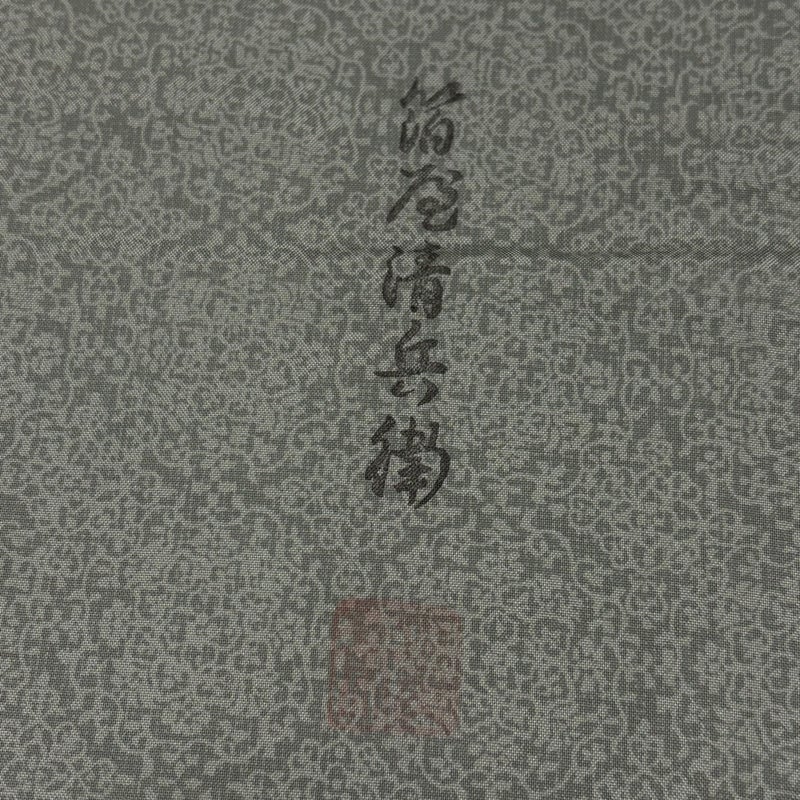 箔屋清兵衛